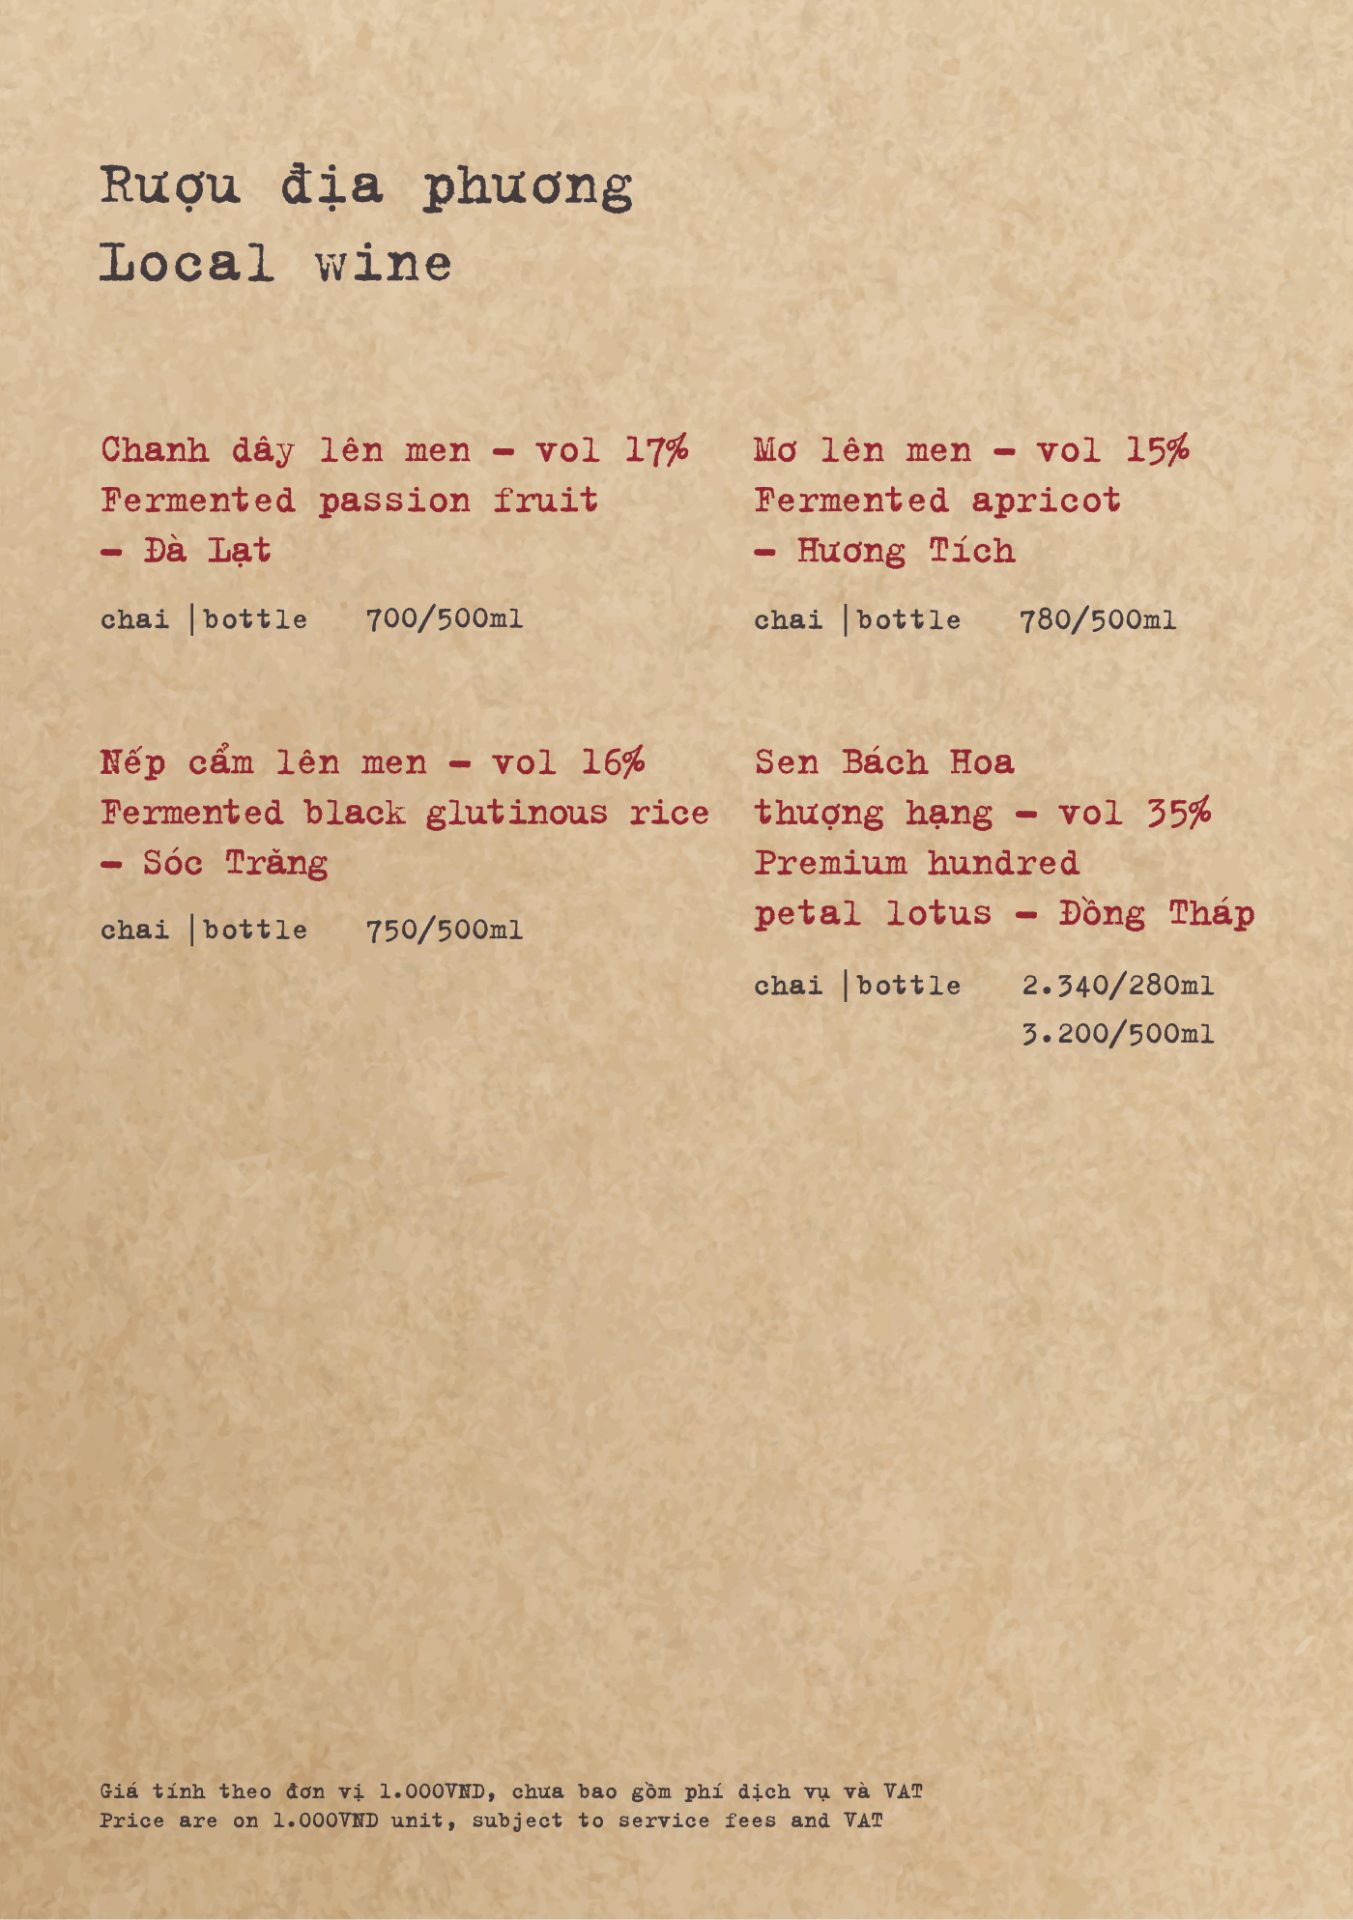 Rượu địa phương
Local wine
Chanh dây lên men – vol 17%
Fermented passion fruit
– Đà Lạt
chai |bottle 700/500ml
Mơ lên men – vol 15%
Fermented apricot
– Hương Tích
chai |bottle 780/500ml
Nếp cẩm lên men – vol 16%
Fermented black glutinous rice
– Sóc Trăng
chai |bottle 750/500ml
Sen Bách Hoa
thượng hạng – vol 35%
Premium hundred
petal lotus – Đồng Tháp
chai |bottle 2.340/280ml
3.200/500ml
Giá tính theo đơn vị 1.000VND, chưa bao gồm phí dịch vụ và VAT
Price are on 1.000VND unit, subject to service fees and VAT